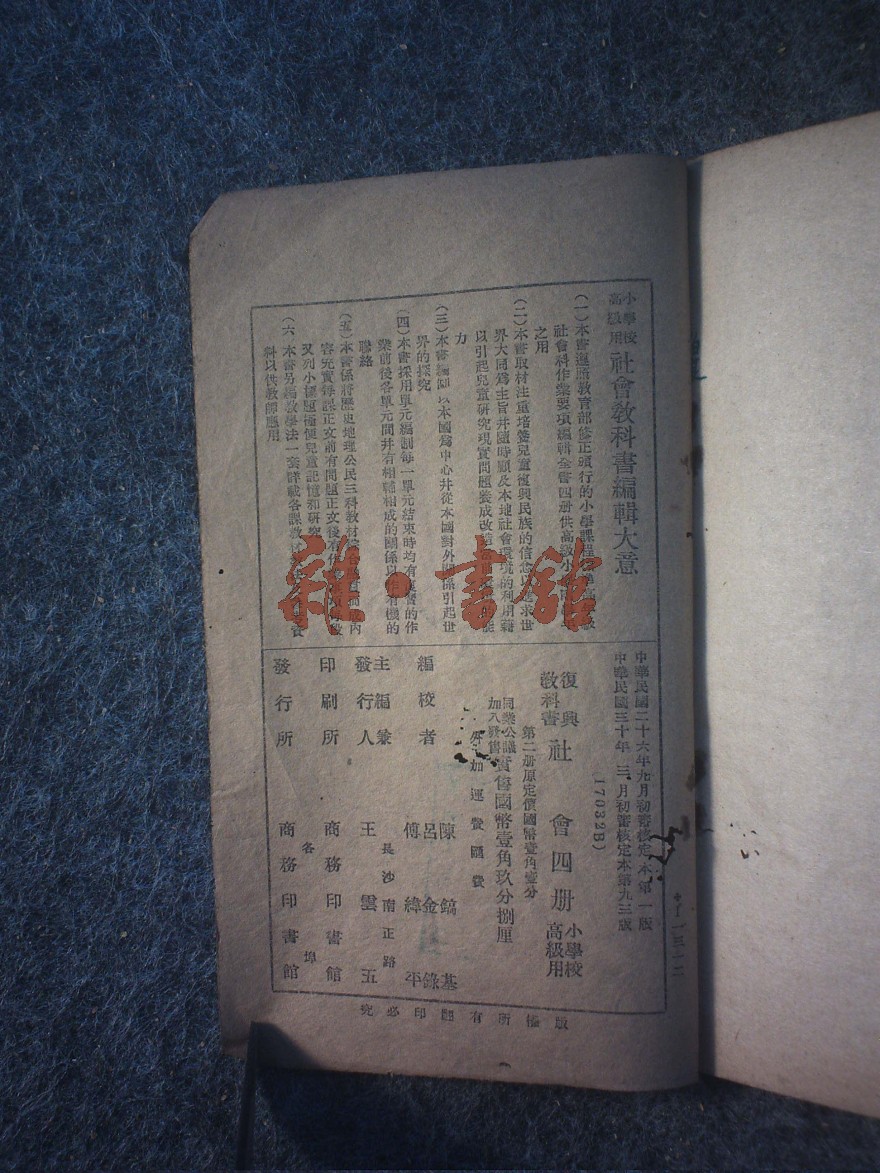 小學校
高級用
社會教科書編輯大意
(一)本書遵照教育部修正頒行的小學課程標準高級
社會科作業要項編輯全書四册供高級小
之用
(二)本書取材注重培養兒童復興民族的信念以求世
界大同爲主旨并隨時顧及本地社會環境的利用藉
以引起兒童研究現實問題養成改造能
力
(三)本書編制以本國爲中心并從本國對外關係引起世
界的探究
(四)本書採用單元編制每一單元結束時均有的作
業前後各單元間并有相輔相成的關係以有機的
聯絡
(五)本書係將歷史地理公民三科教材內
容充實每課正文前有問題正文後有作段
又列小標題極便兒童記憶和研究
(六 本書另編教學法一套詳載各課教材
料以供教師應用
中華民國二十六年九月初審核定本第一版
中華民國三十年 三 月初審核定本第九三版
(17032B)
復興
教科書
社會四册
小學校
高級用
第二册原定價國幣壹角壹分
同業公議
加八發售
實售國幣壹角玖分捌厘
外加運費匯費
編校者
陳鎬基
呂金錄
傅緯平
主編兼
發行人
長沙南正路
王雲五
印刷所
商務印書館
各埠
發行所
商務印書館
版權所有翻印必究
雜·書館